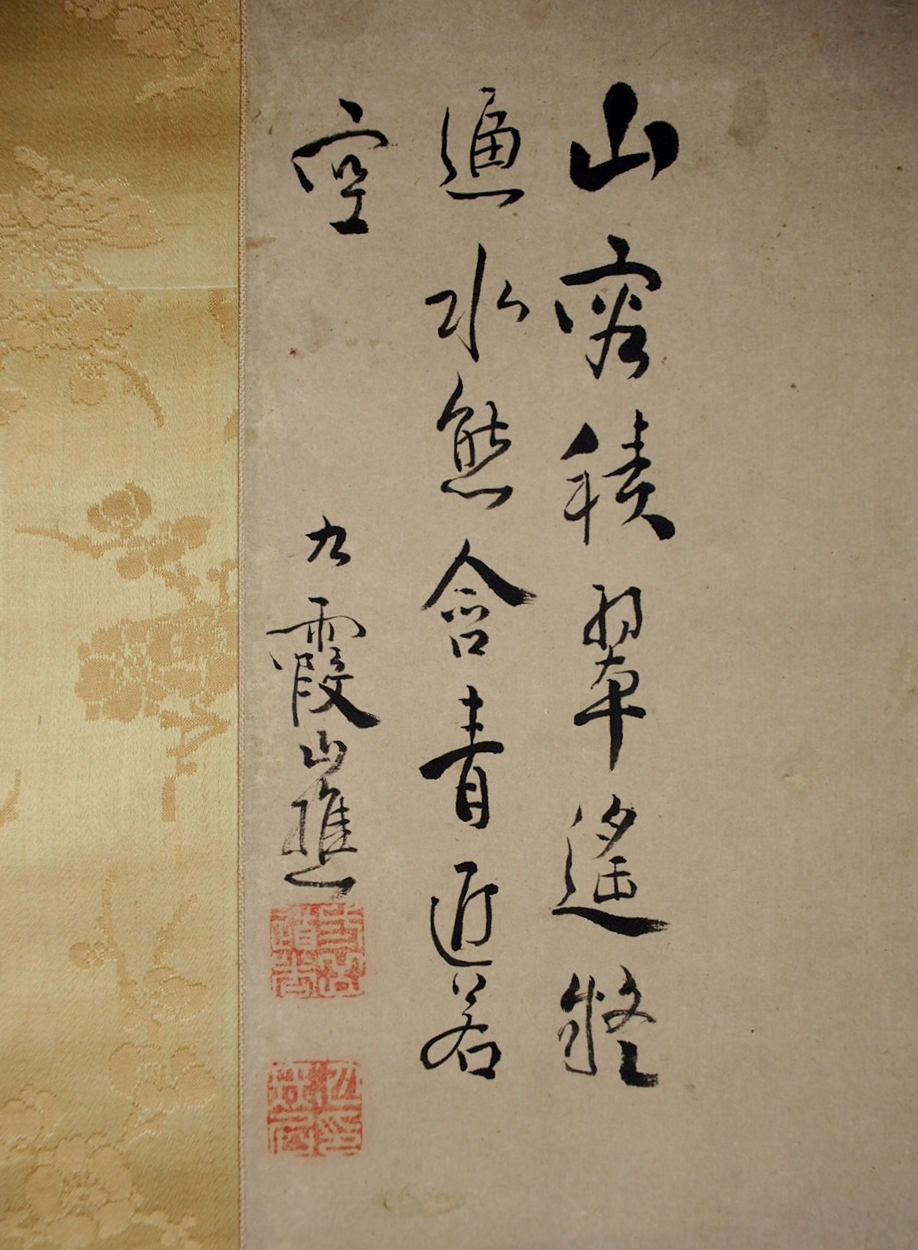 山容積翠遙疑
逼水態含青近若
空
九霞山樵